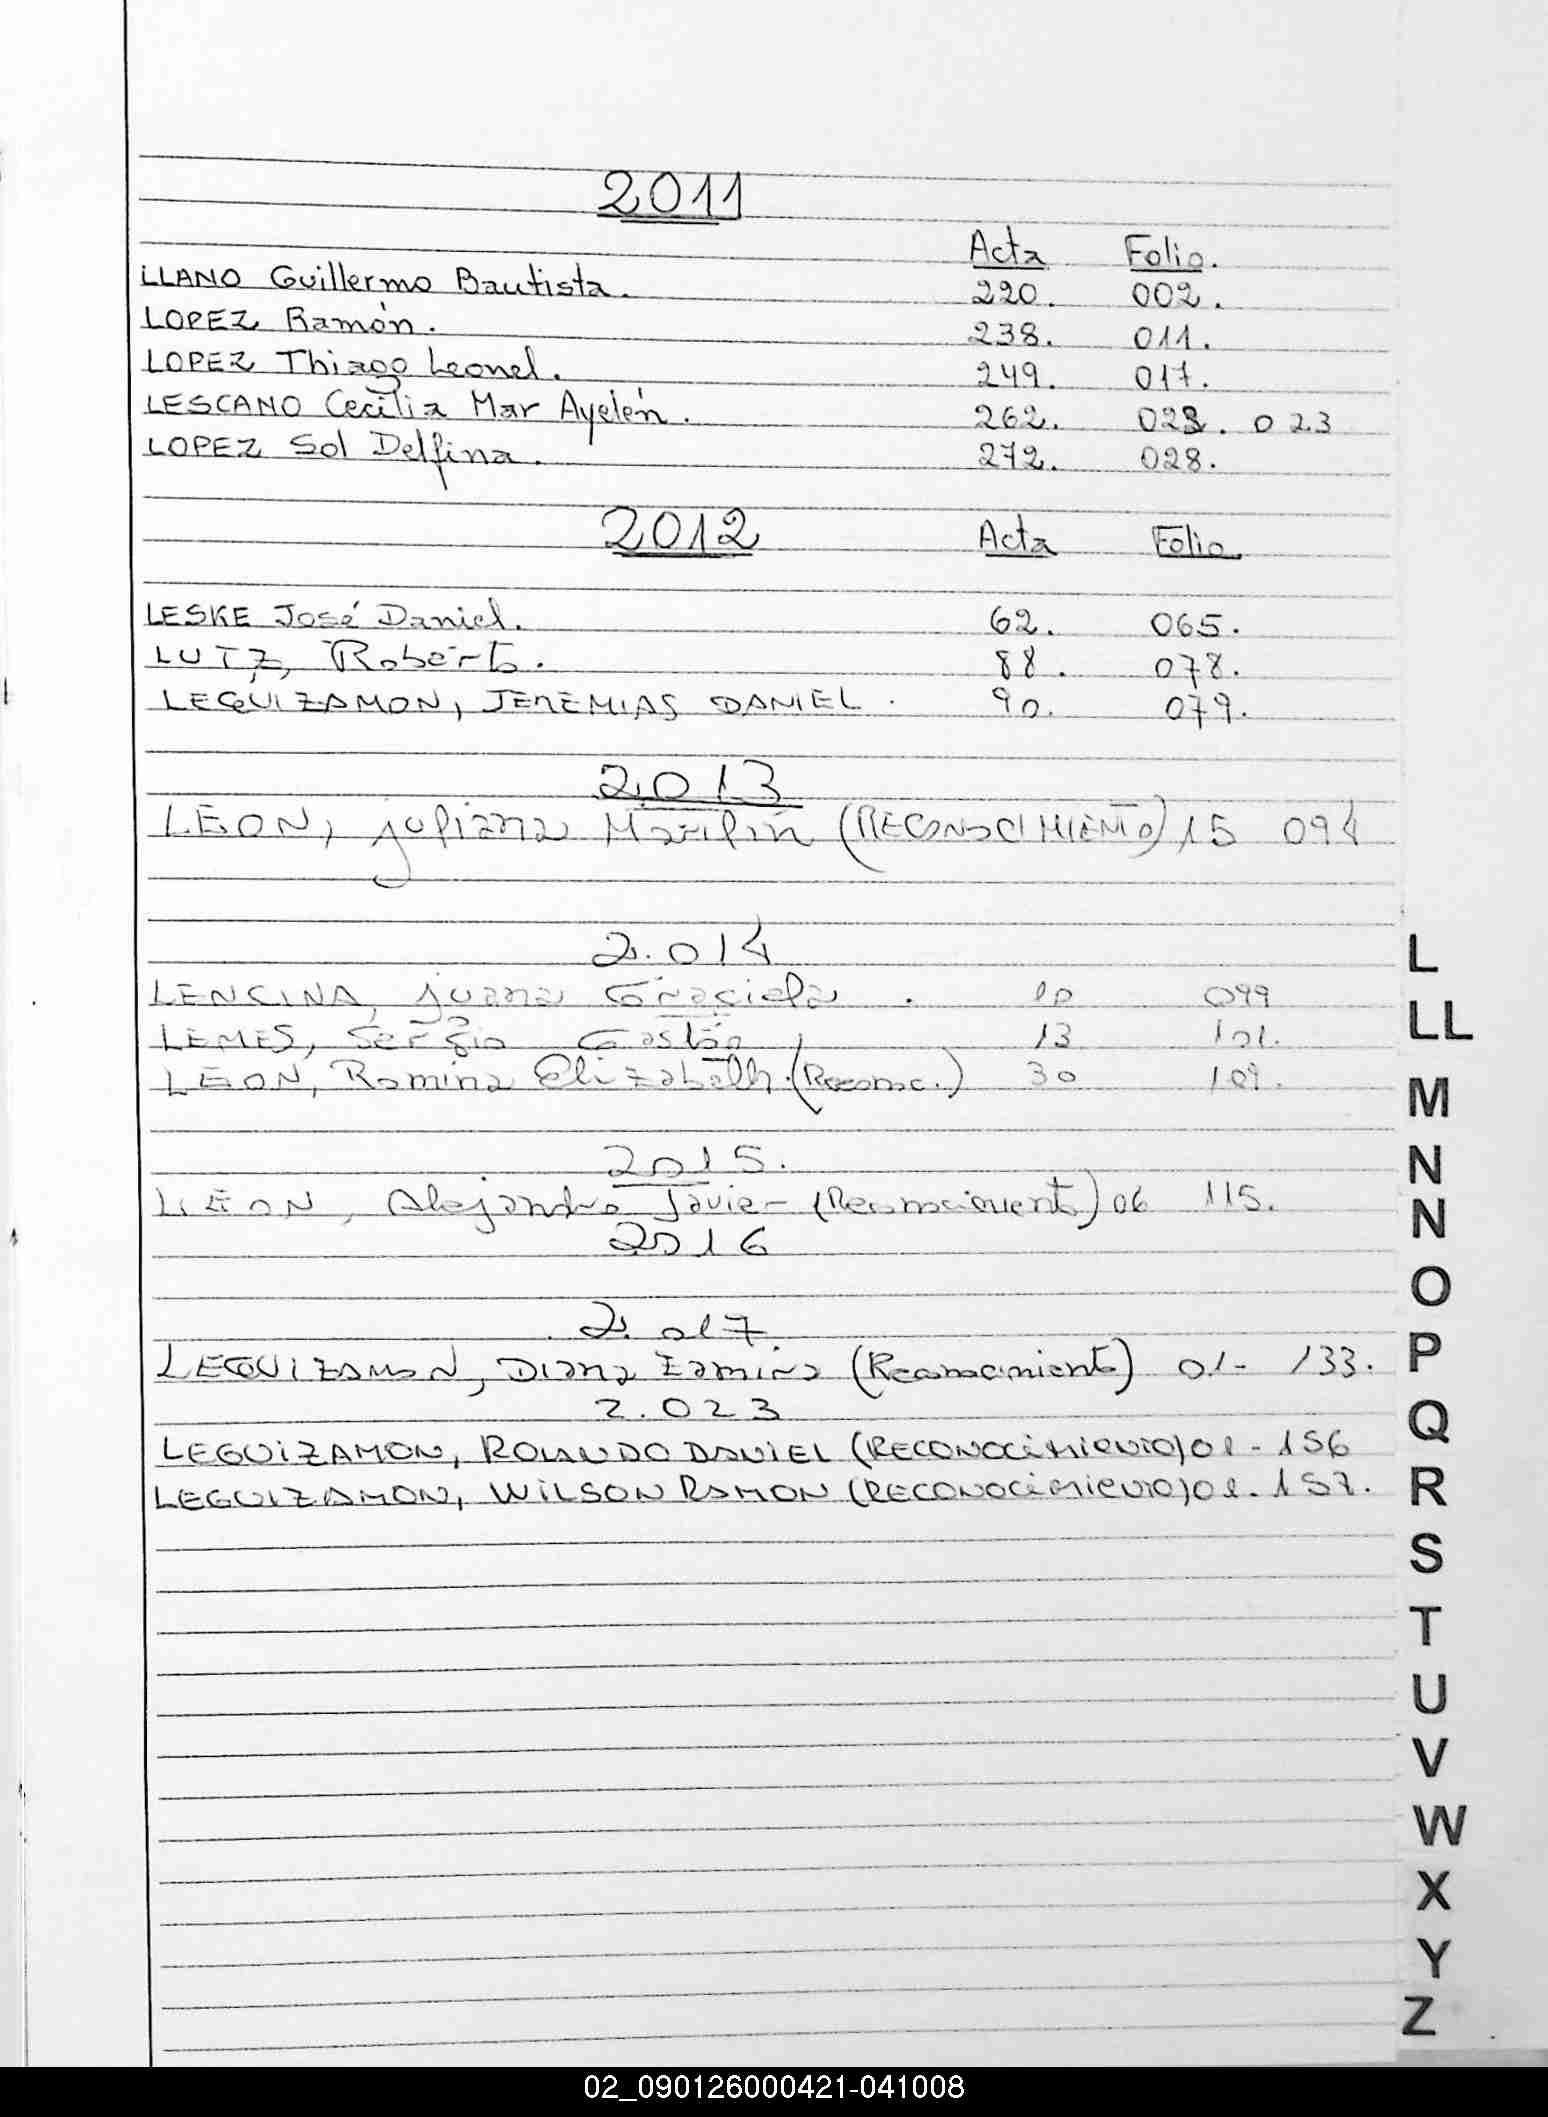 2011
Acta Folio.
LLANO Guillermo Bautista. 220. 002.
LOPEZ Ramón. 238. 011.
LOPEZ Thiago Leonel. 249. 017.
LESCANO Cecilia Mar Ayelén. 262. 023. 023
LOPEZ Sol Delfina. 272. 028.
2012 Acta Folio
LESKE José Daniel. 62. 065.
LUTZ, Roberto. 88. 078.
LEGUIZAMON, JEREMIAS DANIEL. 90. 079.
2.013
LEON, Juliana Marilin (RECONOCIMIENTO) 15 094
2.014
LENCINA, Juana Graciela. 10 099
LEMES, Sergio Gastón 13 101.
LEON, Romina Elizabeth. (Reconoc.) 30 109.
2015.
LEON, Alejandro Javier (Reconocimiento) 06 115.
2016
2.017
LEGUIZAMON, Diana (Reconocimiento) 01- 133.
2.023
LEGUIZAMON, ROLANDO DANIEL (RECONOCIMIENTO) 01 - 156
LEGUIZAMON, WILSON RAMON (RECONOCIMIENTO) 02. 157.
L
LL
M
N
N
O
P
Q
R
S
T
U
V
W
X
Y
Z
02_090126000421-041008